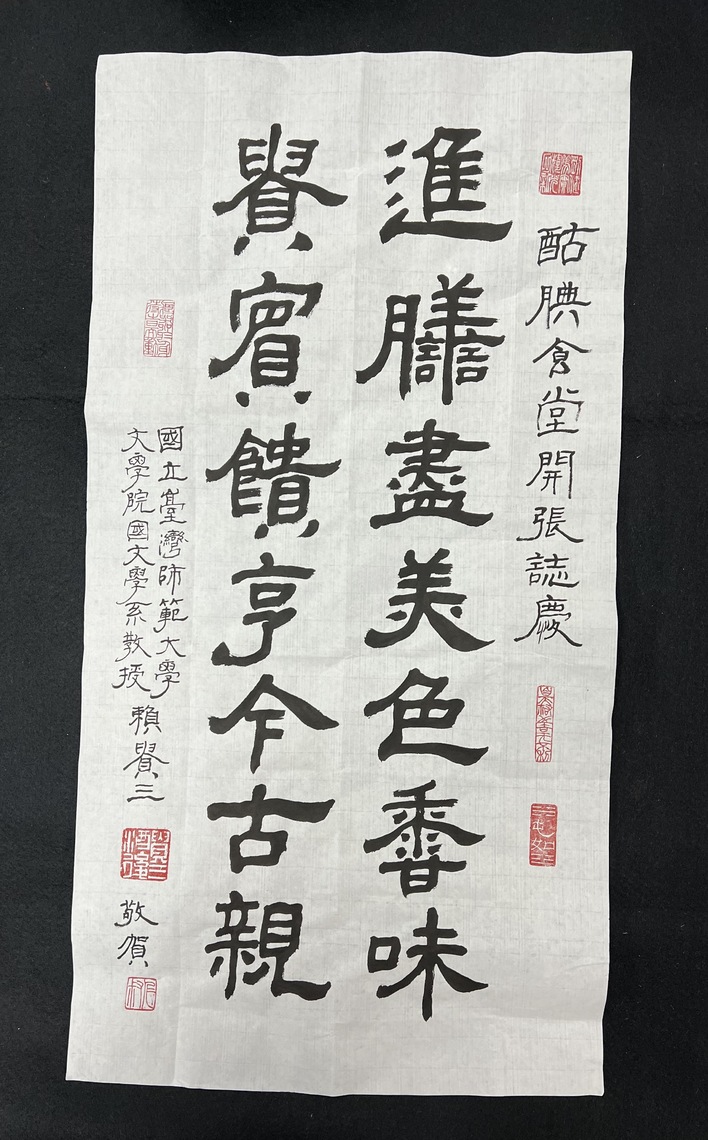 酤腆食堂開張誌慶
進膳盡美色香味
貴賓饋亨今古親
國立臺灣師範大學
文學院國文學系教授
賴貴三
敬賀